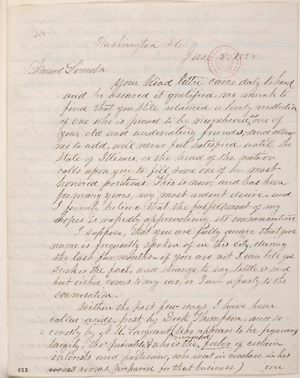 Washington D.C.
Friend Lincoln
Your kind letter came duly to hand
and be assured it gratified me much to
find that you still retained a lively recollection
of one who is proud to be numbered as one of
your old and undeviating friends, and allow
me to add, will never feel satisfied until the
State of Illinois, or the head of the nation
calls upon you to fill some one of her most
honored positions. This is now, and has been
for many years, my most ardent desire and
I firmly believe that the fulfillment of my
hopes is rapidly approaching its consummation
I suppose that you are fully aware that your
name is frequently spoken of in this city, during
the last few months if you are not I can tell you
such is the fact, and strange to say, little is said
but either comes to my ear, or I am a party to the
conversation.
Within the past few days I have been
called aside, first by Dick Thompson, and
by who appears to be figuring
largely, the of certain
interests and who met in conclave in his
rooms, prepared for that business.)